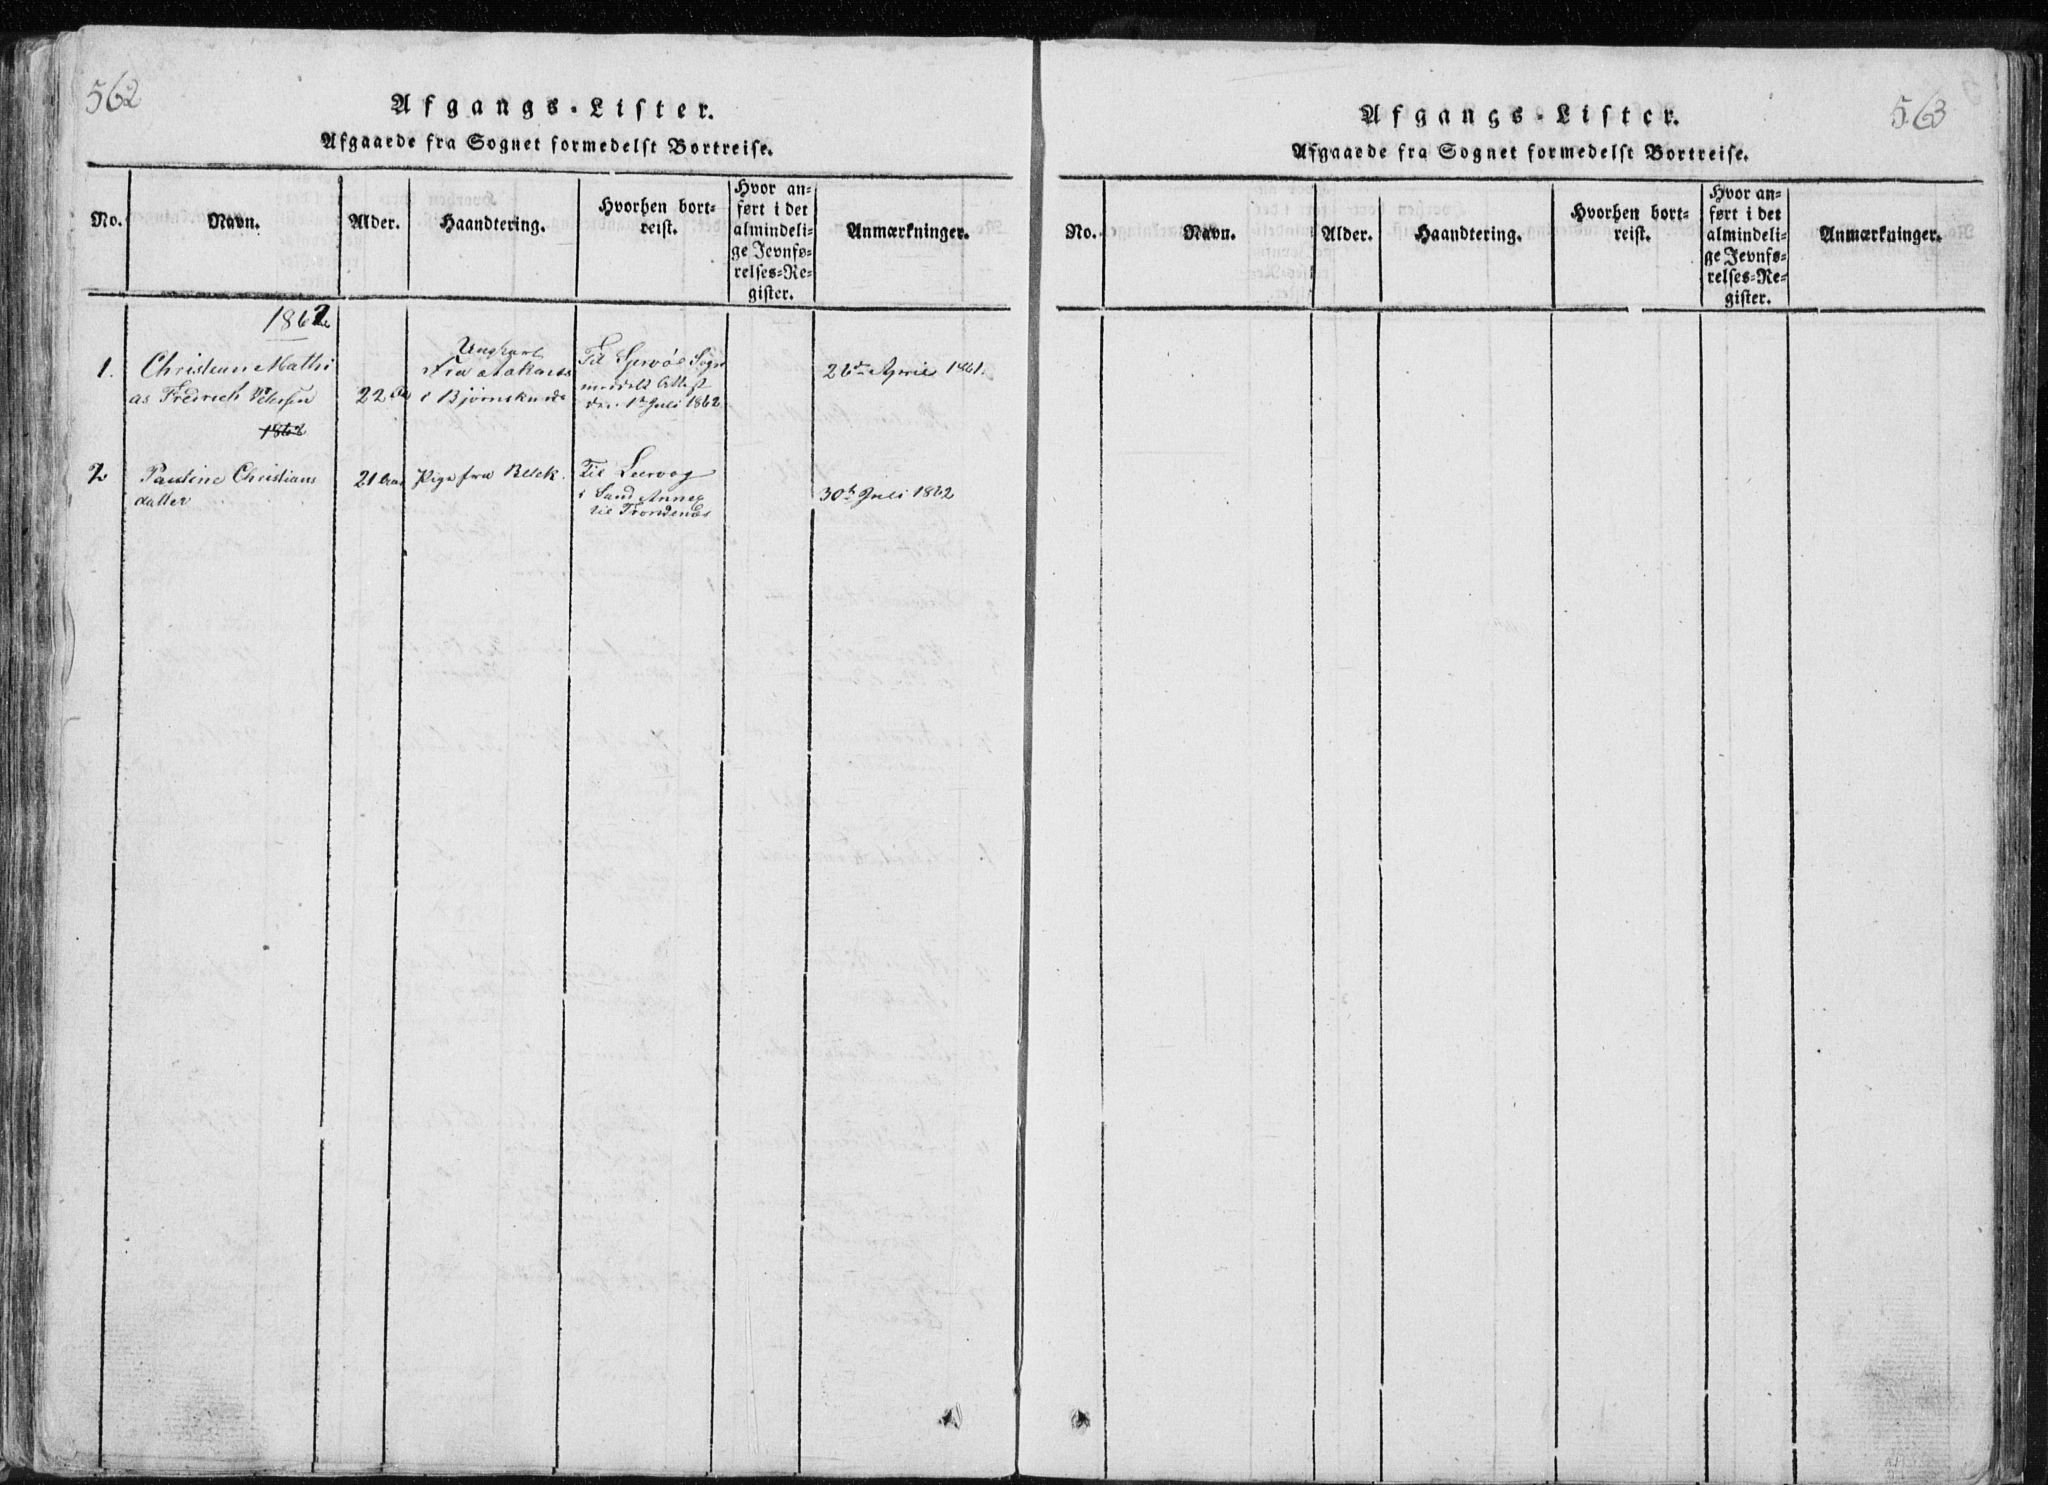 562
Afgangs-Lister.
Afgaaede fra Sognet formedelst Bortreise.
No.
Navn.
Alder.
Haandtering.
Hvorhen bort-
reist.
Hvor an-
ført i det
almindeli-
ge Jevnfø-
relses-Re-
gister.
Anmærkninger.
1862
1.
Christian Mathi
as Fredrich Petersen
22
Ungkarl
Fra
i Bjørnskinds
Til Sogn
den 1ste Juli 1862
26de April 1861.
1862
2
Pauline Christians
datter
21 Aar
Pige fra Bleik.
Til Leervog
i Sand Annex
til Trondenæs
30te Juli 1862
Afgangs-Lister.
563
Afgaaede fra Sognet formedelst Bortreise.
No.
Navn.
Alder.
Haandtering.
Hvorhen bort-
reist.
Hvor an-
ført i det
almindeli-
ge Jevnfø-
relses-Re-
gister.
Anmærkninger.